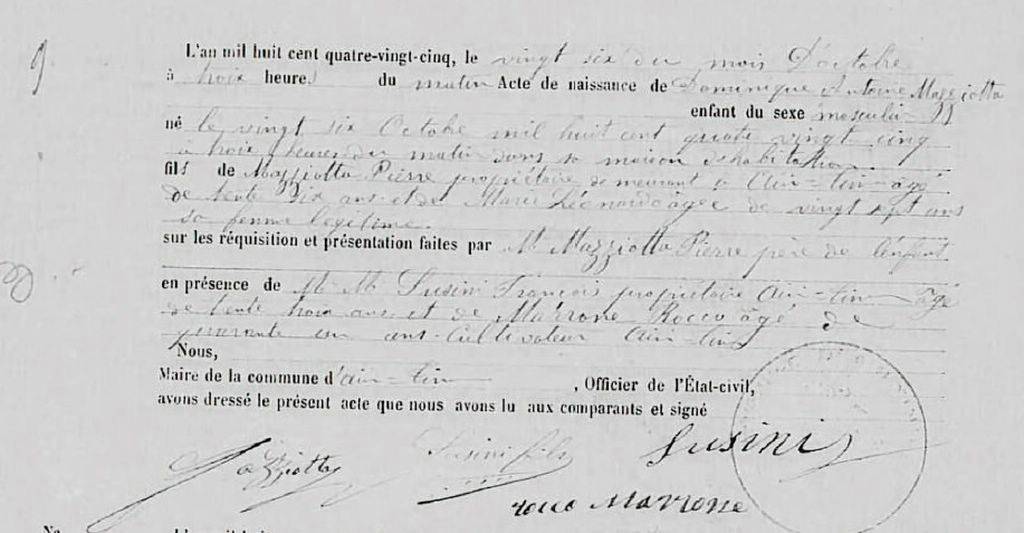 9
L'an mil huit cent quatre-vingt-cinq, le vingt six du mois d'octobre
à trois heures du matin Acte de naissance de Dominique Antoine Mazziotta
enfant du sexe masculin
né le vingt six Octobre mil huit cent quatre vingt cinq
à trois heures du matin dans sa maison d'habitation
fils de Mazziotta Pierre propriétaire demeurant à Ain-tin âgé
de trente six ans et de Marie Léonarde âgée de vingt sept ans
sa femme légitime.
sur les réquisition et présentation faites par Mr Mazziotta Pierre père de l'enfant
en présence de M M Susini François propriétaire Ain-tin âgé
de trente trois ans et de Marrone Rocco âgé de
quarante un ans Cultivateur Ain-tin
Nous,
Maire de la commune d'ain-tin , Officier de l'État-civil,
avons dressé le présent acte que nous avons lu aux comparants et signé
Mazziotta Susini fils Susini
rocco Marrone